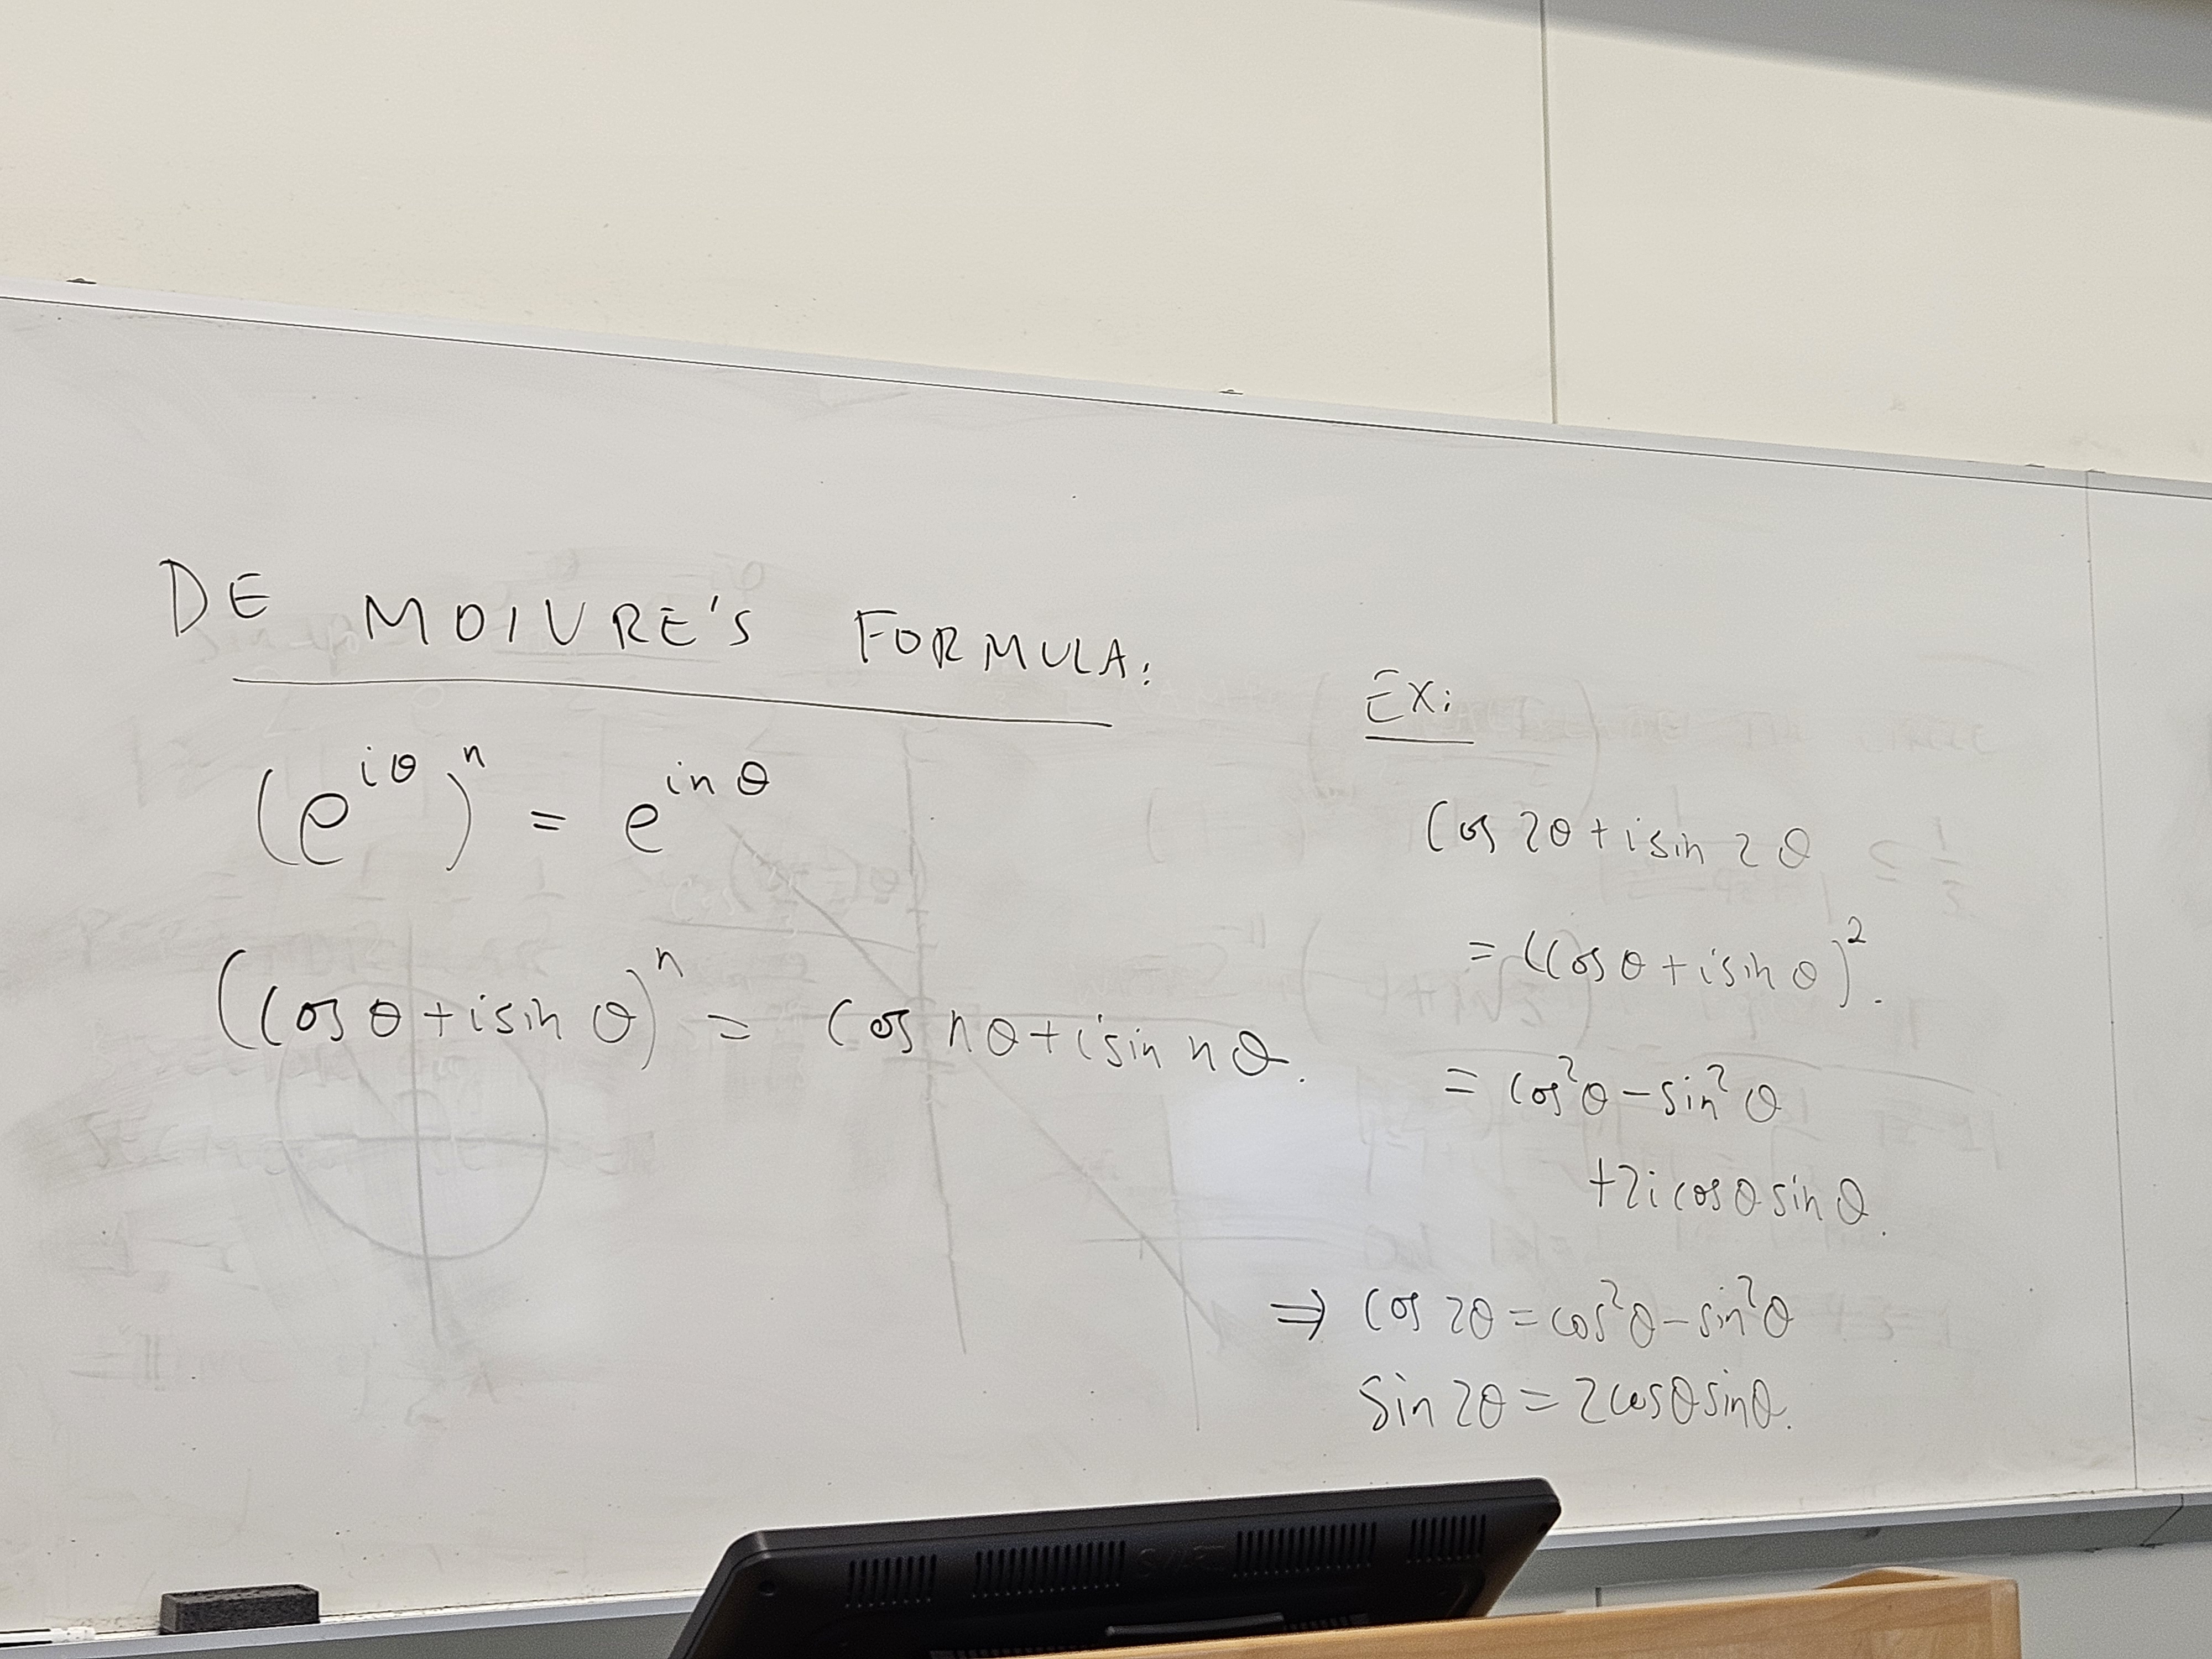 DE MOIVRE'S FORMULA:
(e^{iθ})^n = e^{inθ}
(cos θ + i sin θ)^n = cos nθ + i sin nθ.
EX:
cos 2θ + i sin 2θ
= (cos θ + i sin θ)^2.
= cos^2 θ - sin^2 θ
+ 2i cos θ sin θ.
⇒ cos 2θ = cos^2 θ - sin^2 θ
sin 2θ = 2 cos θ sin θ.